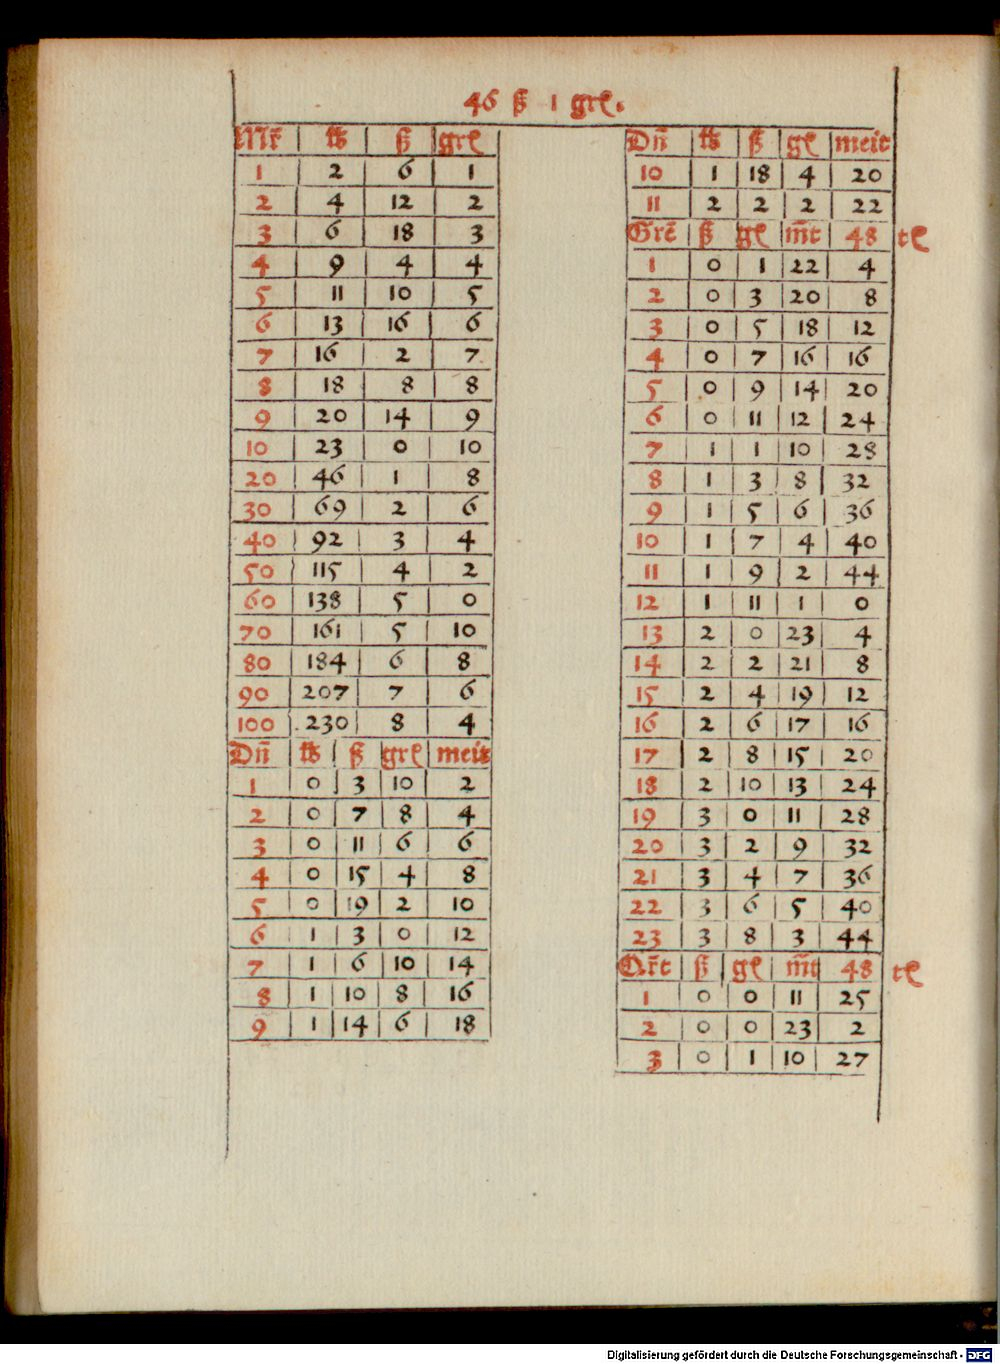 46 ß 1 grꝭ.
Mr̄ | ℔ | ß | grꝭ
1 | 2 | 6 | 1
2 | 4 | 12 | 2
3 | 6 | 18 | 3
4 | 9 | 4 | 4
5 | 11 | 10 | 5
6 | 13 | 16 | 6
7 | 16 | 2 | 7
8 | 18 | 8 | 8
9 | 20 | 14 | 9
10 | 23 | 0 | 10
20 | 46 | 1 | 8
30 | 69 | 2 | 6
40 | 92 | 3 | 4
50 | 115 | 4 | 2
60 | 138 | 5 | 0
70 | 161 | 5 | 10
80 | 184 | 6 | 8
90 | 207 | 7 | 6
100 | 230 | 8 | 4
Dn̄ | ℔ | ß | grꝭ | meit
1 | 0 | 3 | 10 | 2
2 | 0 | 7 | 8 | 4
3 | 0 | 11 | 6 | 6
4 | 0 | 15 | 4 | 8
5 | 0 | 19 | 2 | 10
6 | 1 | 3 | 0 | 12
7 | 1 | 6 | 10 | 14
8 | 1 | 10 | 8 | 16
9 | 1 | 14 | 6 | 18
Dn̄ | ℔ | ß | gꝭ | meit
10 | 1 | 18 | 4 | 20
11 | 2 | 2 | 2 | 22
Grē | ß | gꝭ | m̄t | 48 tꝭ
1 | 0 | 1 | 22 | 4
2 | 0 | 3 | 20 | 8
3 | 0 | 5 | 18 | 12
4 | 0 | 7 | 16 | 16
5 | 0 | 9 | 14 | 20
6 | 0 | 11 | 12 | 24
7 | 1 | 1 | 10 | 28
8 | 1 | 3 | 8 | 32
9 | 1 | 5 | 6 | 36
10 | 1 | 7 | 4 | 40
11 | 1 | 9 | 2 | 44
12 | 1 | 11 | 1 | 0
13 | 2 | 0 | 23 | 4
14 | 2 | 2 | 21 | 8
15 | 2 | 4 | 19 | 12
16 | 2 | 6 | 17 | 16
17 | 2 | 8 | 15 | 20
18 | 2 | 10 | 13 | 24
19 | 3 | 0 | 11 | 28
20 | 3 | 2 | 9 | 32
21 | 3 | 4 | 7 | 36
22 | 3 | 6 | 5 | 40
23 | 3 | 8 | 3 | 44
Or̄t | ß | gꝭ | m̄t | 48 tꝭ
1 | 0 | 0 | 11 | 25
2 | 0 | 0 | 23 | 2
3 | 0 | 1 | 10 | 27
Digitalisierung gefördert durch die Deutsche Forschungsgemeinschaft - DFG